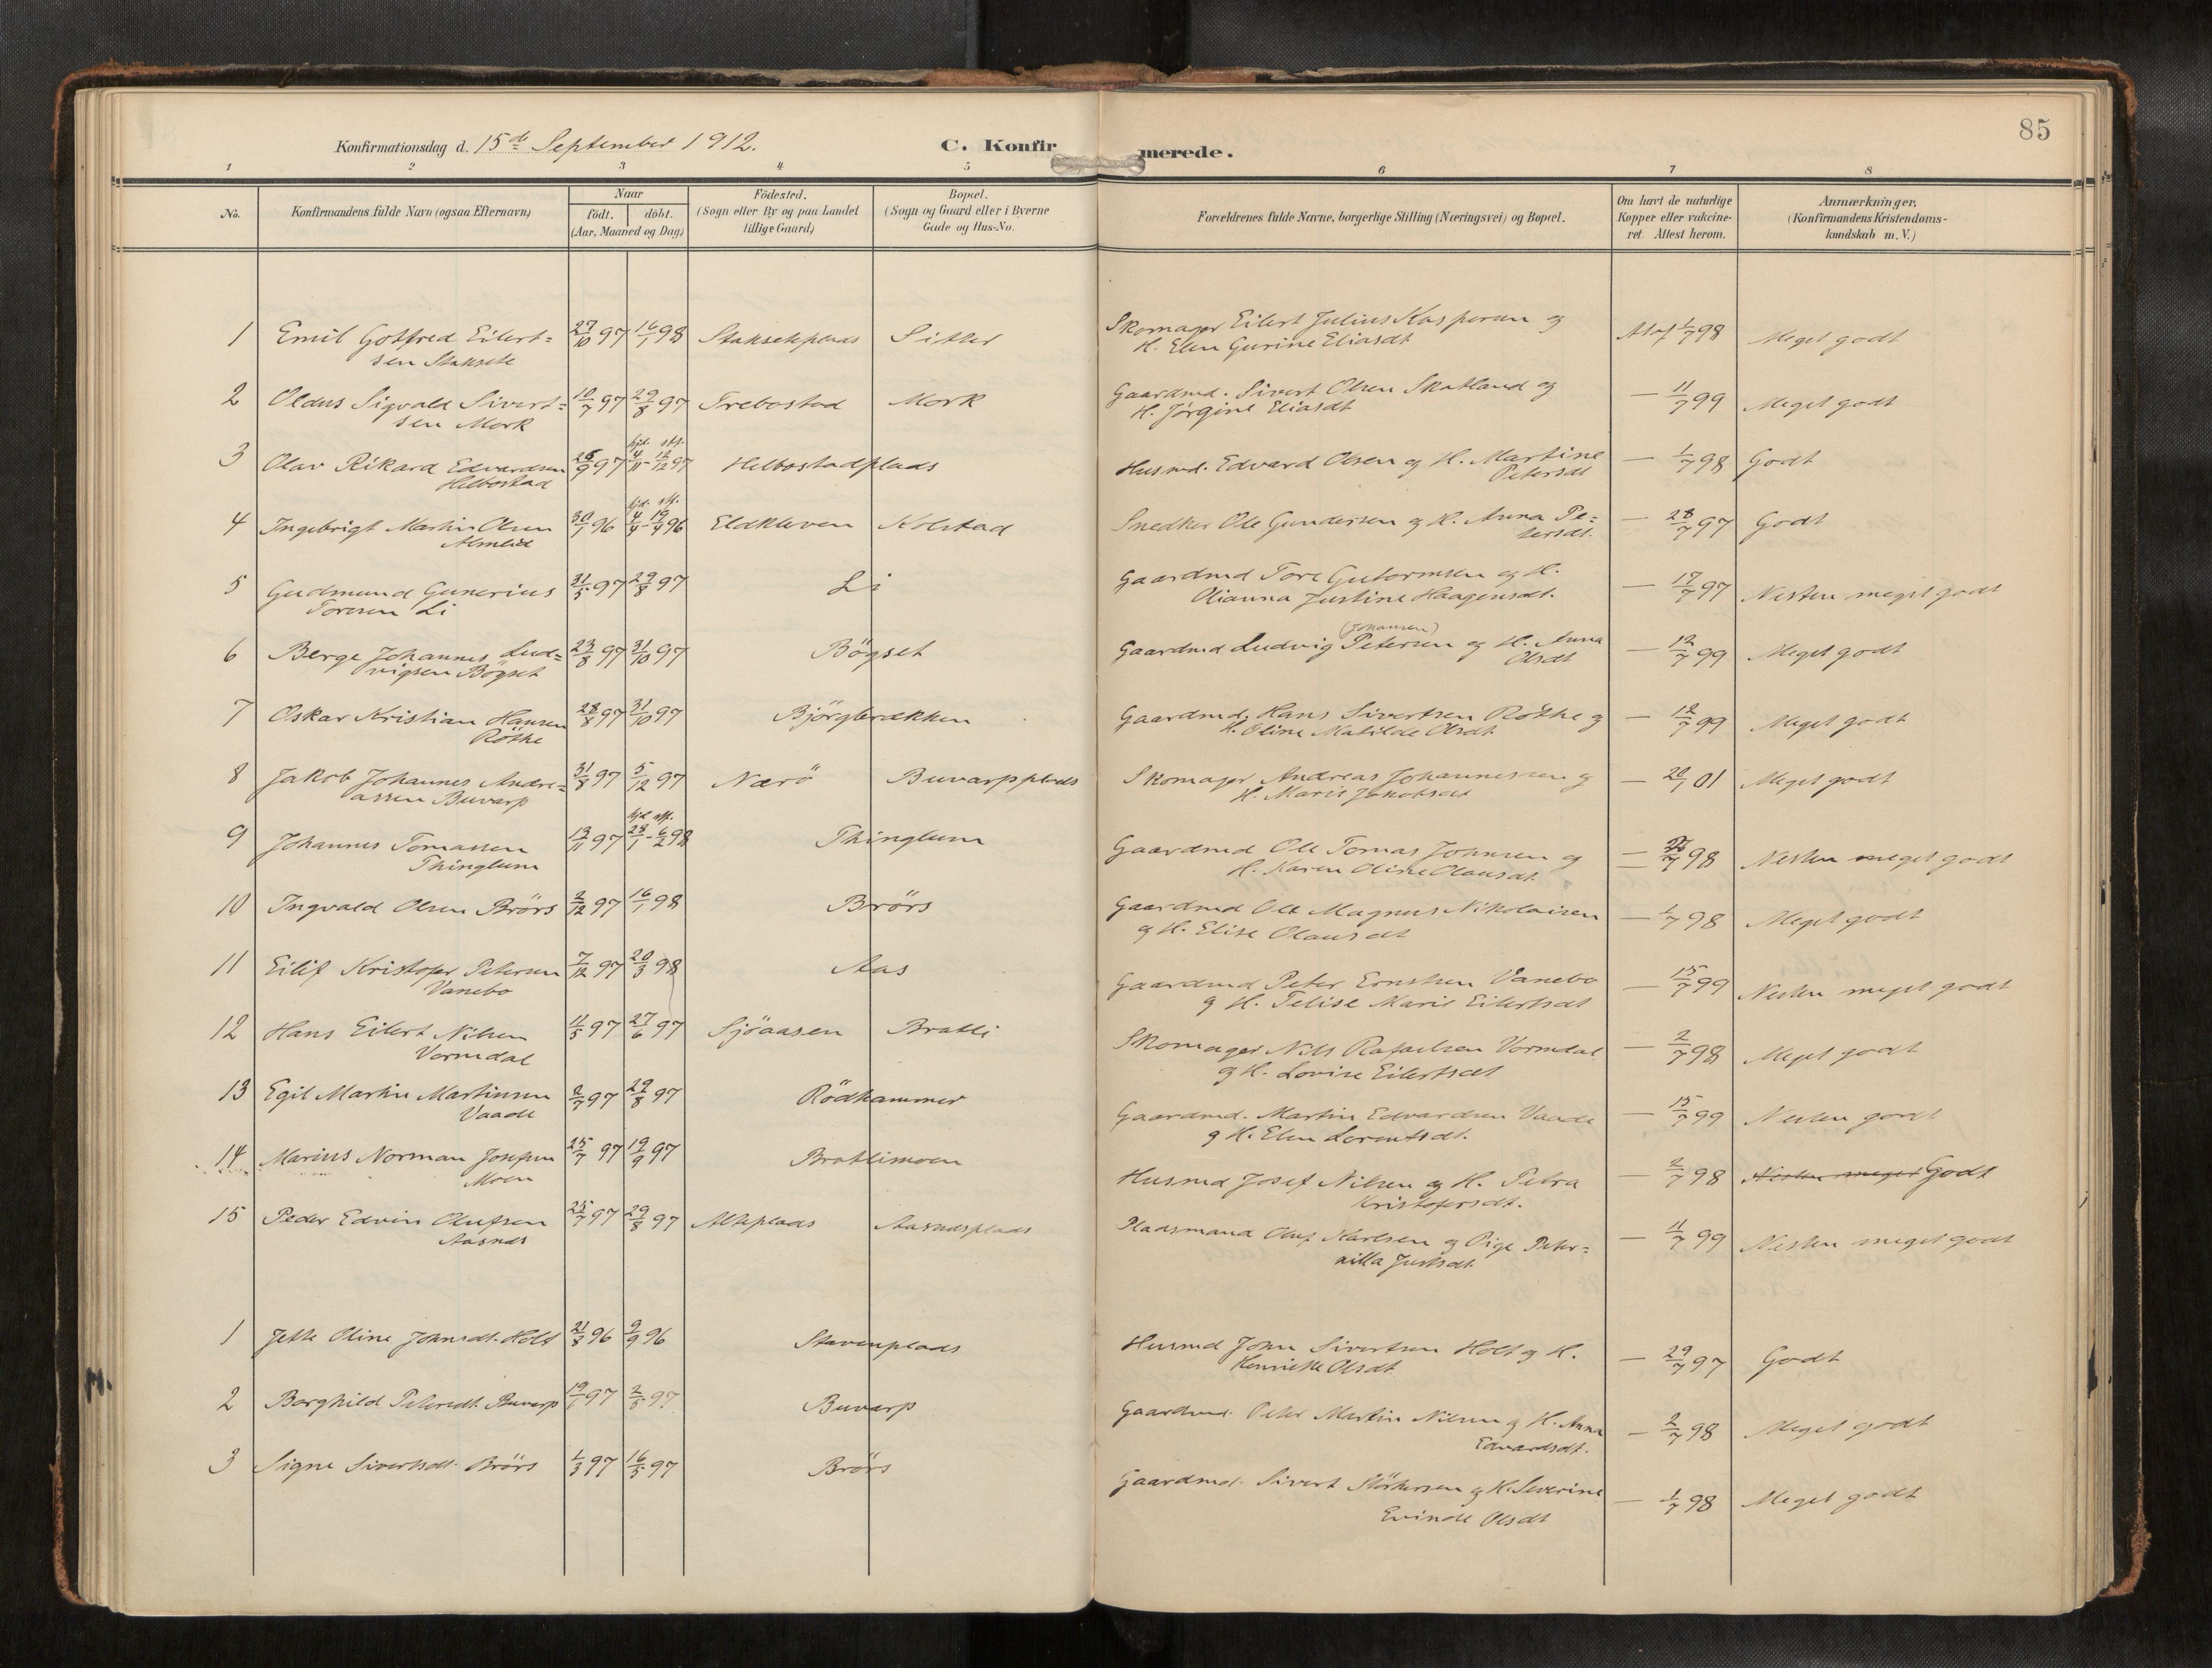 85
Konfirmationsdag d. 15de September 1912.
C. Konfirmerede.
1 2 3 4 5 6 7 8
No.
Konfirmandens fulde Navn (ogsaa Efternavn)
Naar
födt. döbt.
(Aar, Maaned og Dag)
Födested.
(Sogn eller By og paa Landet
tillige Gaard)
Bopæl.
(Sogn og Gaard eller i Byerne
Gade og Hus-No.
Forældrenes fulde Navne, borgerlige Stilling (Næringsvei) og Bopæl.
Om havt de naturlige
Kopper eller vakcine-
ret. Attest herom.
Anmærkninger.
(Konfirmandens Kristendoms-
kundskab m. V.)
1 Emil Gotfred Eilert= 27/10 97 16/1 98 Staksetplads Sitter Skomager Eilert Julius Kaspersen og Atof 1/7 98 Meget godt
sen Staksete H. Elen Gurine Eliasdt
2 Oldus Sigvald Sivert= 10/7 97 29/8 97 Trebostad Mork Gaardmd. Sivert Olsen Skatland og — 11/7 99 Meget godt
sen Mork H. Jörgine Eliasdt
3 Olav Rikard Edvardsen 26/9 97 hjd. 4/11 - stf. 12/12 97 Helbostadplads Husmd. Edvard Olsen og H. Martine — 1/7 98 Godt
Helbostad Petersdt
4 Ingebrigt Martin Olsen 30/1 96 hjd. 4/4 - stf. 19/4 96 Eldkleven Kolstad Snedker Ole Gundersen og H. Anna Pe= — 28/7 97 Godt
Almlid tersdt.
5 Gudmund Gunerius 31/5 97 29/8 97 Li Gaardmd Tore Gutormsen og H. — 17/7 97 Nesten meget godt
Toresen Li Olianna Justine Haagensdt.
6 Berge Johannes Lud= 23/8 97 31/10 97 Bögset Gaardmd Ludvig Petersen (Johansen) og H. Anna — 12/7 99 Meget godt
vigsen Bögset Olsdt
7 Oskar Kristian Hansen 28/8 97 31/10 97 Björgbrækken Gaardmd. Hans Sivertsen Röthe og — 12/7 99 Meget godt
Röthe H. Oline Matilde Olsdt
8 Jakob Johannes Andre= 31/8 97 5/12 97 Nærö Buvarpplads Skomager Andreas Johannessen og — 20/1 01 Meget godt
assen Buvarp H. Marit Jakobsdt
9 Johannes Tomassen 13/11 97 hjd. 23/1 - stf. 6/2 98 Thinglum Gaardmd Ole Tomas Johnsen og — 98 Nesten meget godt
Thinglum H. Karen Oline Olausdt.
10 Ingvald Olsen Brörs 2/12 97 16/1 98 Brörs Gaardmd Ole Magnus Nikolaisen — 1/7 98 Meget godt
og H. Elise Olausdt
11 Eilif Kristofer Petersen 7/12 97 20/3 98 Aas Gaardmd Peter Ernstsen Vanebo — 15/7 99 Nesten meget godt
Vanebo og H. Telise Marie Eilertsdt
12 Hans Eilert Nilsen 11/5 97 27/6 97 Sjöaasen Bratli Skomager Nils Rafaelsen Vormdal — 2/7 98 Meget godt
Vormdal og H. Lovise Eilertsdt
13 Egil Martin Martinsen 2/7 97 29/8 97 Rödhammer Gaardmd. Martin Edvardsen Vaade — 15/7 99 Nesten godt
Vaade og H. Elen Lorentsdt.
14 Marius Norman Josefsen 25/7 97 19/9 97 Bratlimoen Husmd Josef Nilsen og H. Petra — 2/7 98 Nesten meget Godt
Moen Kristofersdt.
15 Peder Edvin Olufsen 25/7 97 29/8 97 Alteplads Aasnesplads Pladsmand Oluf Karlsen og Pige Peter= — 11/7 99 Nesten meget godt
Aasnes nilla Justsdt.
1 Jette Oline Johnsdt. Holt 21/8 96 9/9 96 Stavenplads Husmd John Sivertsen Holt og H. — 29/7 97 Godt
Henriette Olsdt
2 Borghild Petersdt. Buvarp 19/1 97 2/5 97 Buvarp Gaardmd. Peter Martin Nilsen og H. Anna — 2/7 98 Meget godt
Edvardsdt.
3 Signe Sivertsdt. Brörs 1/3 97 16/5 97 Brörs Gaardmd. Sivert Störkersen og H. Severine — 1/7 98 Meget godt
Evinde Olsdt